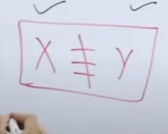 ✓ ✓
X ≢ Y